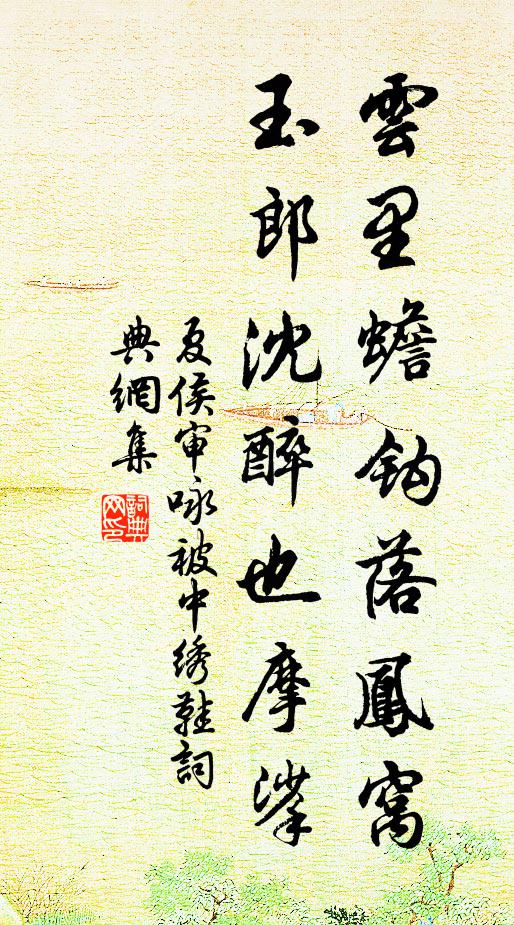 雲里蟾鈎落鳳窩
玉郎沈醉也摩挲
夏侯审咏被中绣鞋詞
典網集
詞典
网印